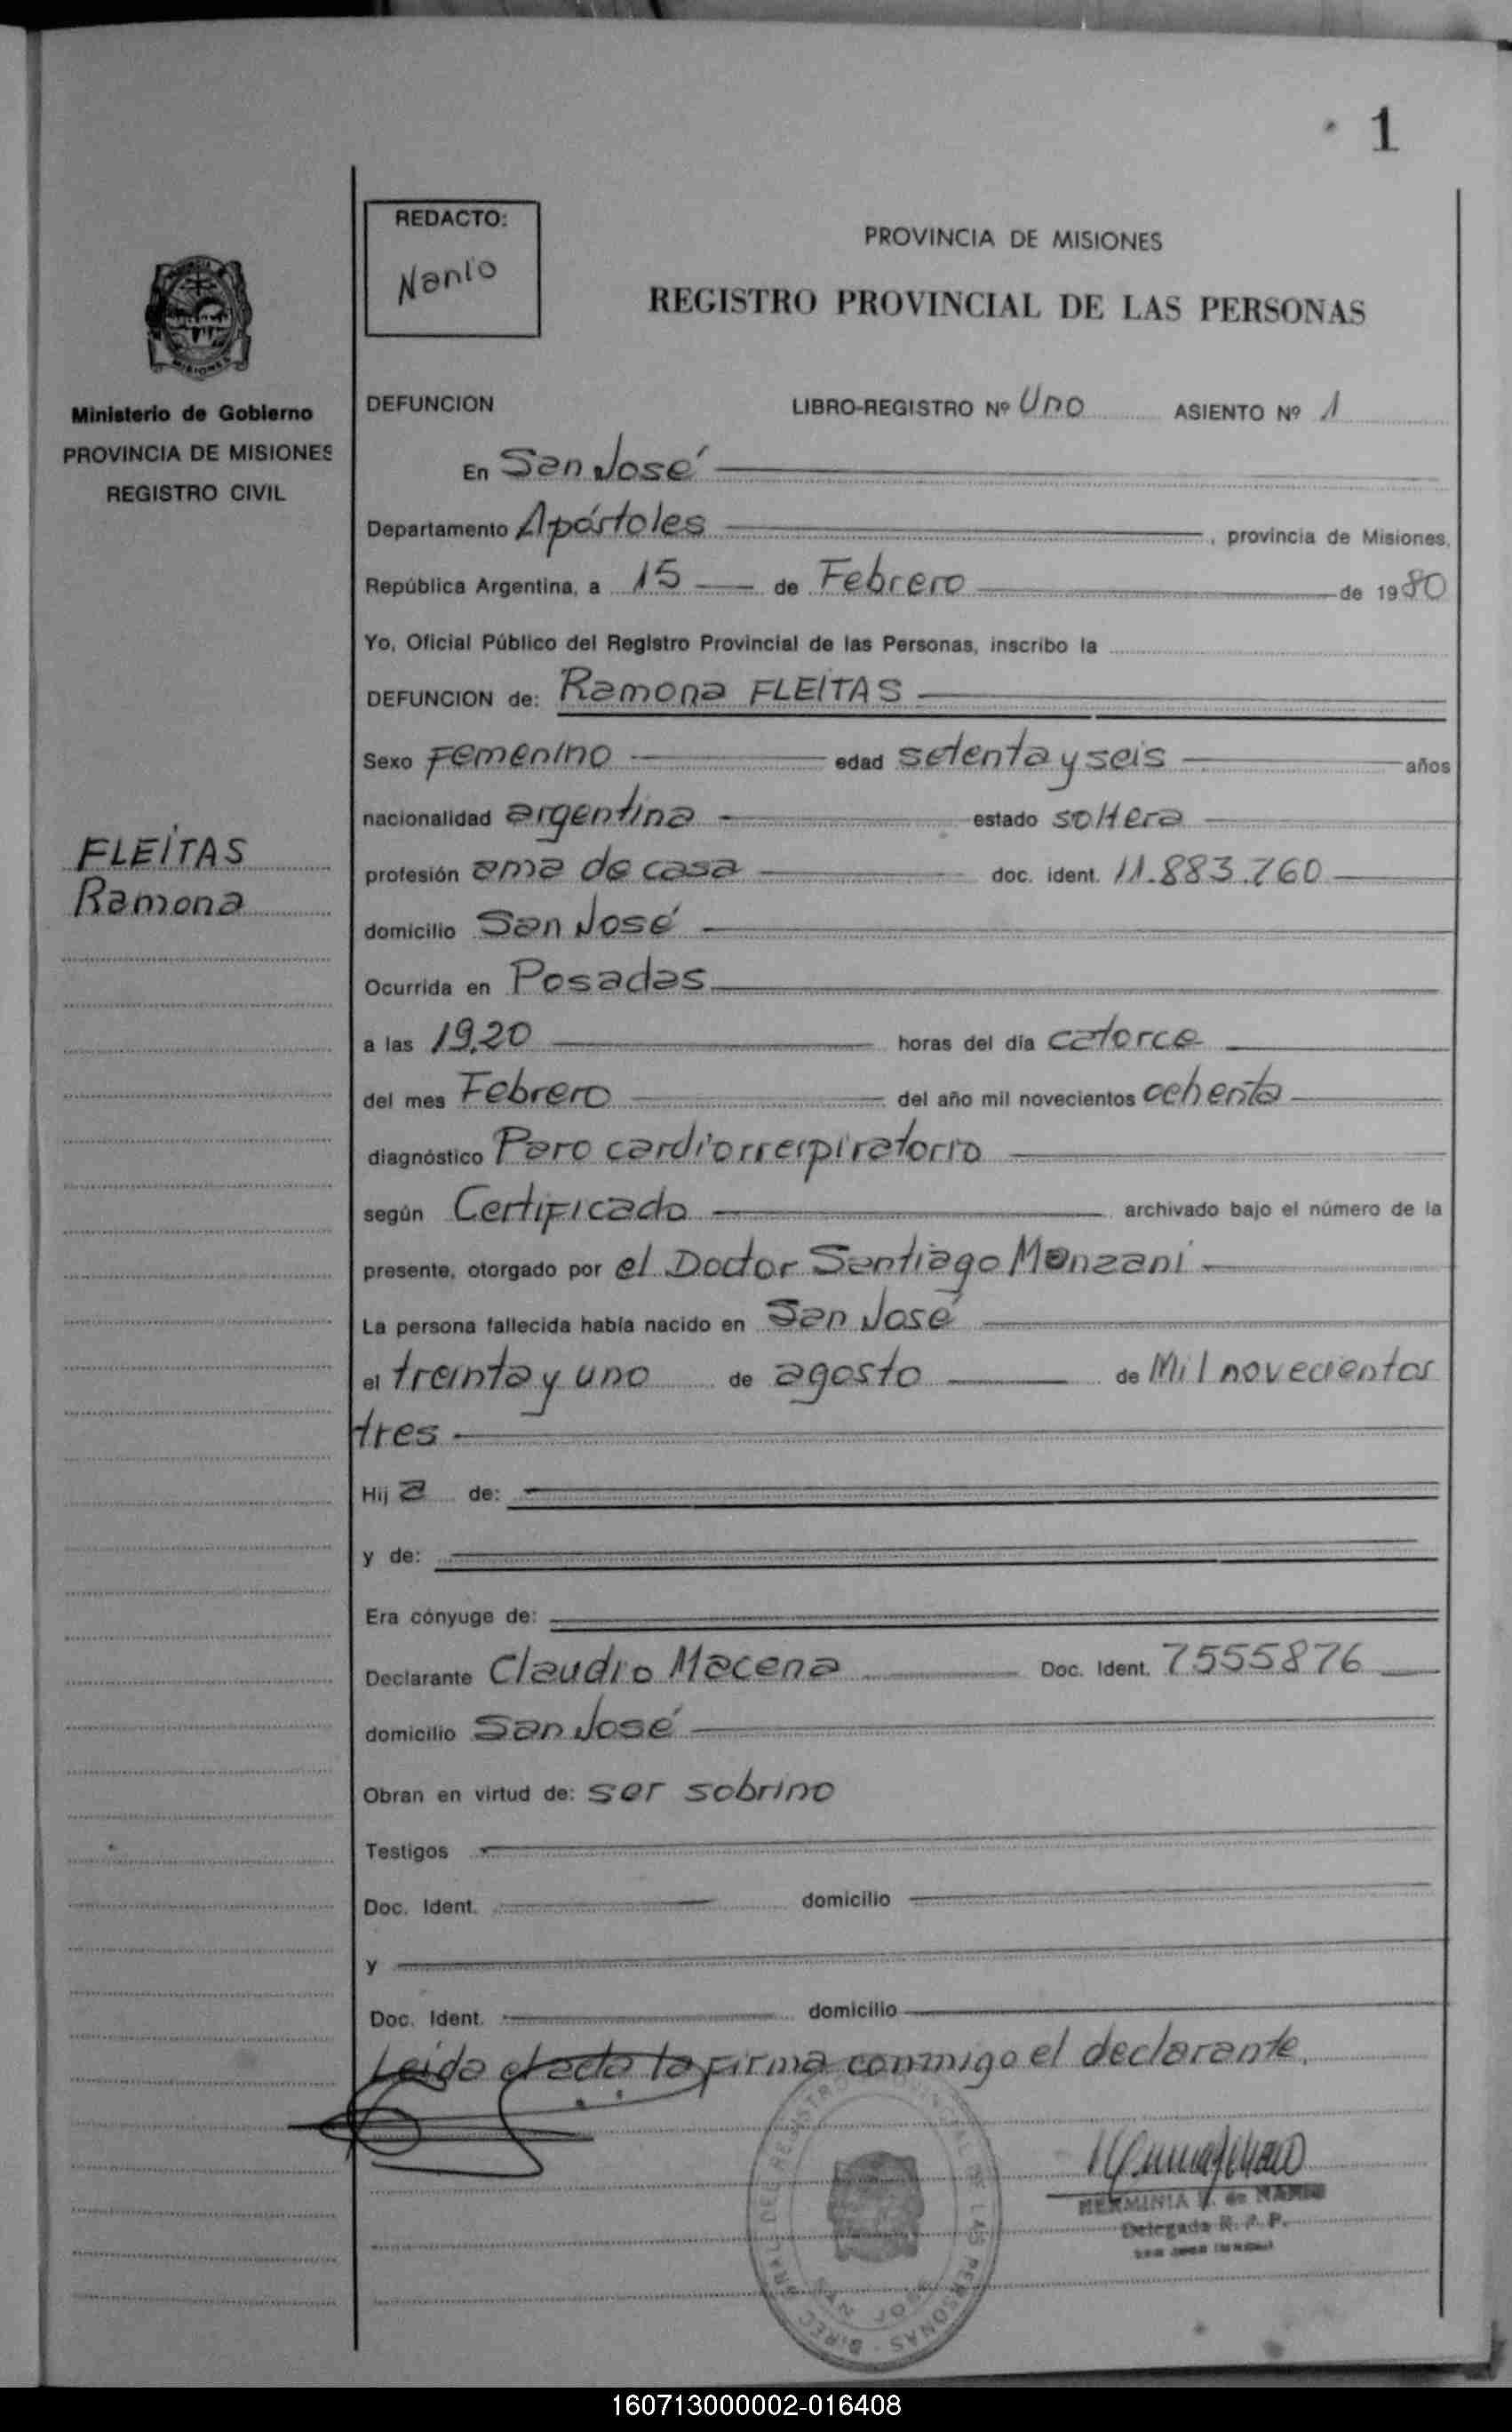 1
REDACTO:
Nanio
PROVINCIA DE MISIONES
REGISTRO PROVINCIAL DE LAS PERSONAS
Ministerio de Gobierno
PROVINCIA DE MISIONES
REGISTRO CIVIL
FLEITAS
Ramona
DEFUNCION LIBRO-REGISTRO Nº Uno ASIENTO Nº 1
En San José
Departamento Apóstoles, provincia de Misiones,
República Argentina, a 15 de Febrero de 1980
Yo, Oficial Público del Registro Provincial de las Personas, inscribo la
DEFUNCION de: Ramona FLEITAS
Sexo Femenino edad setenta y seis años
nacionalidad argentina estado soltera
profesión ama de casa doc. ident. 11.883.760
domicilio San José
Ocurrida en Posadas
a las 19,20 horas del día catorce
del mes Febrero del año mil novecientos ochenta
diagnóstico Paro cardiorrespiratorio
según Certificado archivado bajo el número de la
presente, otorgado por el Doctor Santiago Manzani
La persona fallecida había nacido en San José
el treinta y uno de agosto de Mil novecientos
tres
Hij a de:
y de:
Era cónyuge de:
Declarante Claudio Macena Doc. Ident. 7555876
domicilio San José
Obran en virtud de: ser sobrino
Testigos
Doc. Ident. domicilio
y
Doc. Ident. domicilio
Leída el acta la firma conmigo el declarante.
HERMINIA de
Delegada R. P. P.
SAN JOSE
160713000002-016408